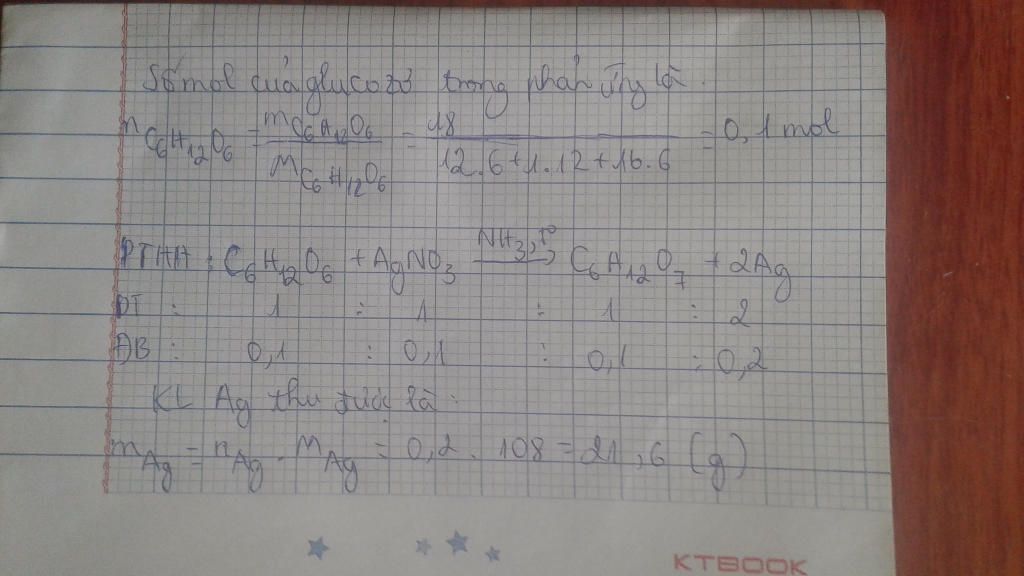 Số mol của glucozơ trong phản ứng là:
nC₆H₁₂O₆ = mC₆H₁₂O₆ / MC₆H₁₂O₆ = 18 / 12.6+1.12+16.6 = 0,1 mol
PTHH : C₆H₁₂O₆ + AgNO₃ NH₃,t° → C₆H₁₂O₇ + 2Ag
PT : 1 : 1 : 1 : 2
ĐB : 0,1 : 0,1 : 0,1 : 0,2
KL Ag thu được là:
mAg = nAg . MAg = 0,2 . 108 = 21,6 (g)
KTBOOK